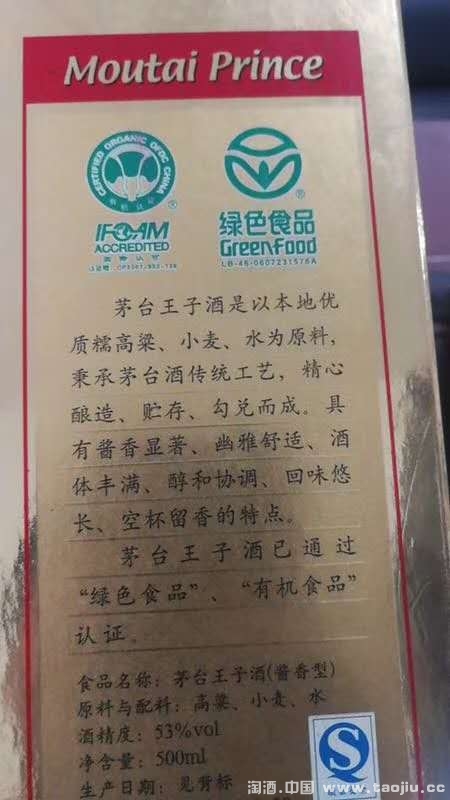 Moutai Prince
CERTIFIED ORGANIC OFDC CHINA
®
®
IFOAM
ACCREDITED
绿色食品
GreenFood
LB-46-0607231576A
茅台王子酒是以本地优
质糯高粱、小麦、水为原料,
秉承茅台酒传统工艺,精心
酿造、贮存、勾兑而成。具
有酱香显著、幽雅舒适、酒
体丰满、醇和协调、回味悠
长、空杯留香的特点。
茅台王子酒已通过
“绿色食品”、“有机食品”
认证。
食品名称:茅台王子酒(酱香型)
原料与配料:高粱、小麦、水
酒精度:53%vol
净含量:500ml
生产日期:见背标
淘酒.中国 www.taojiu.cc